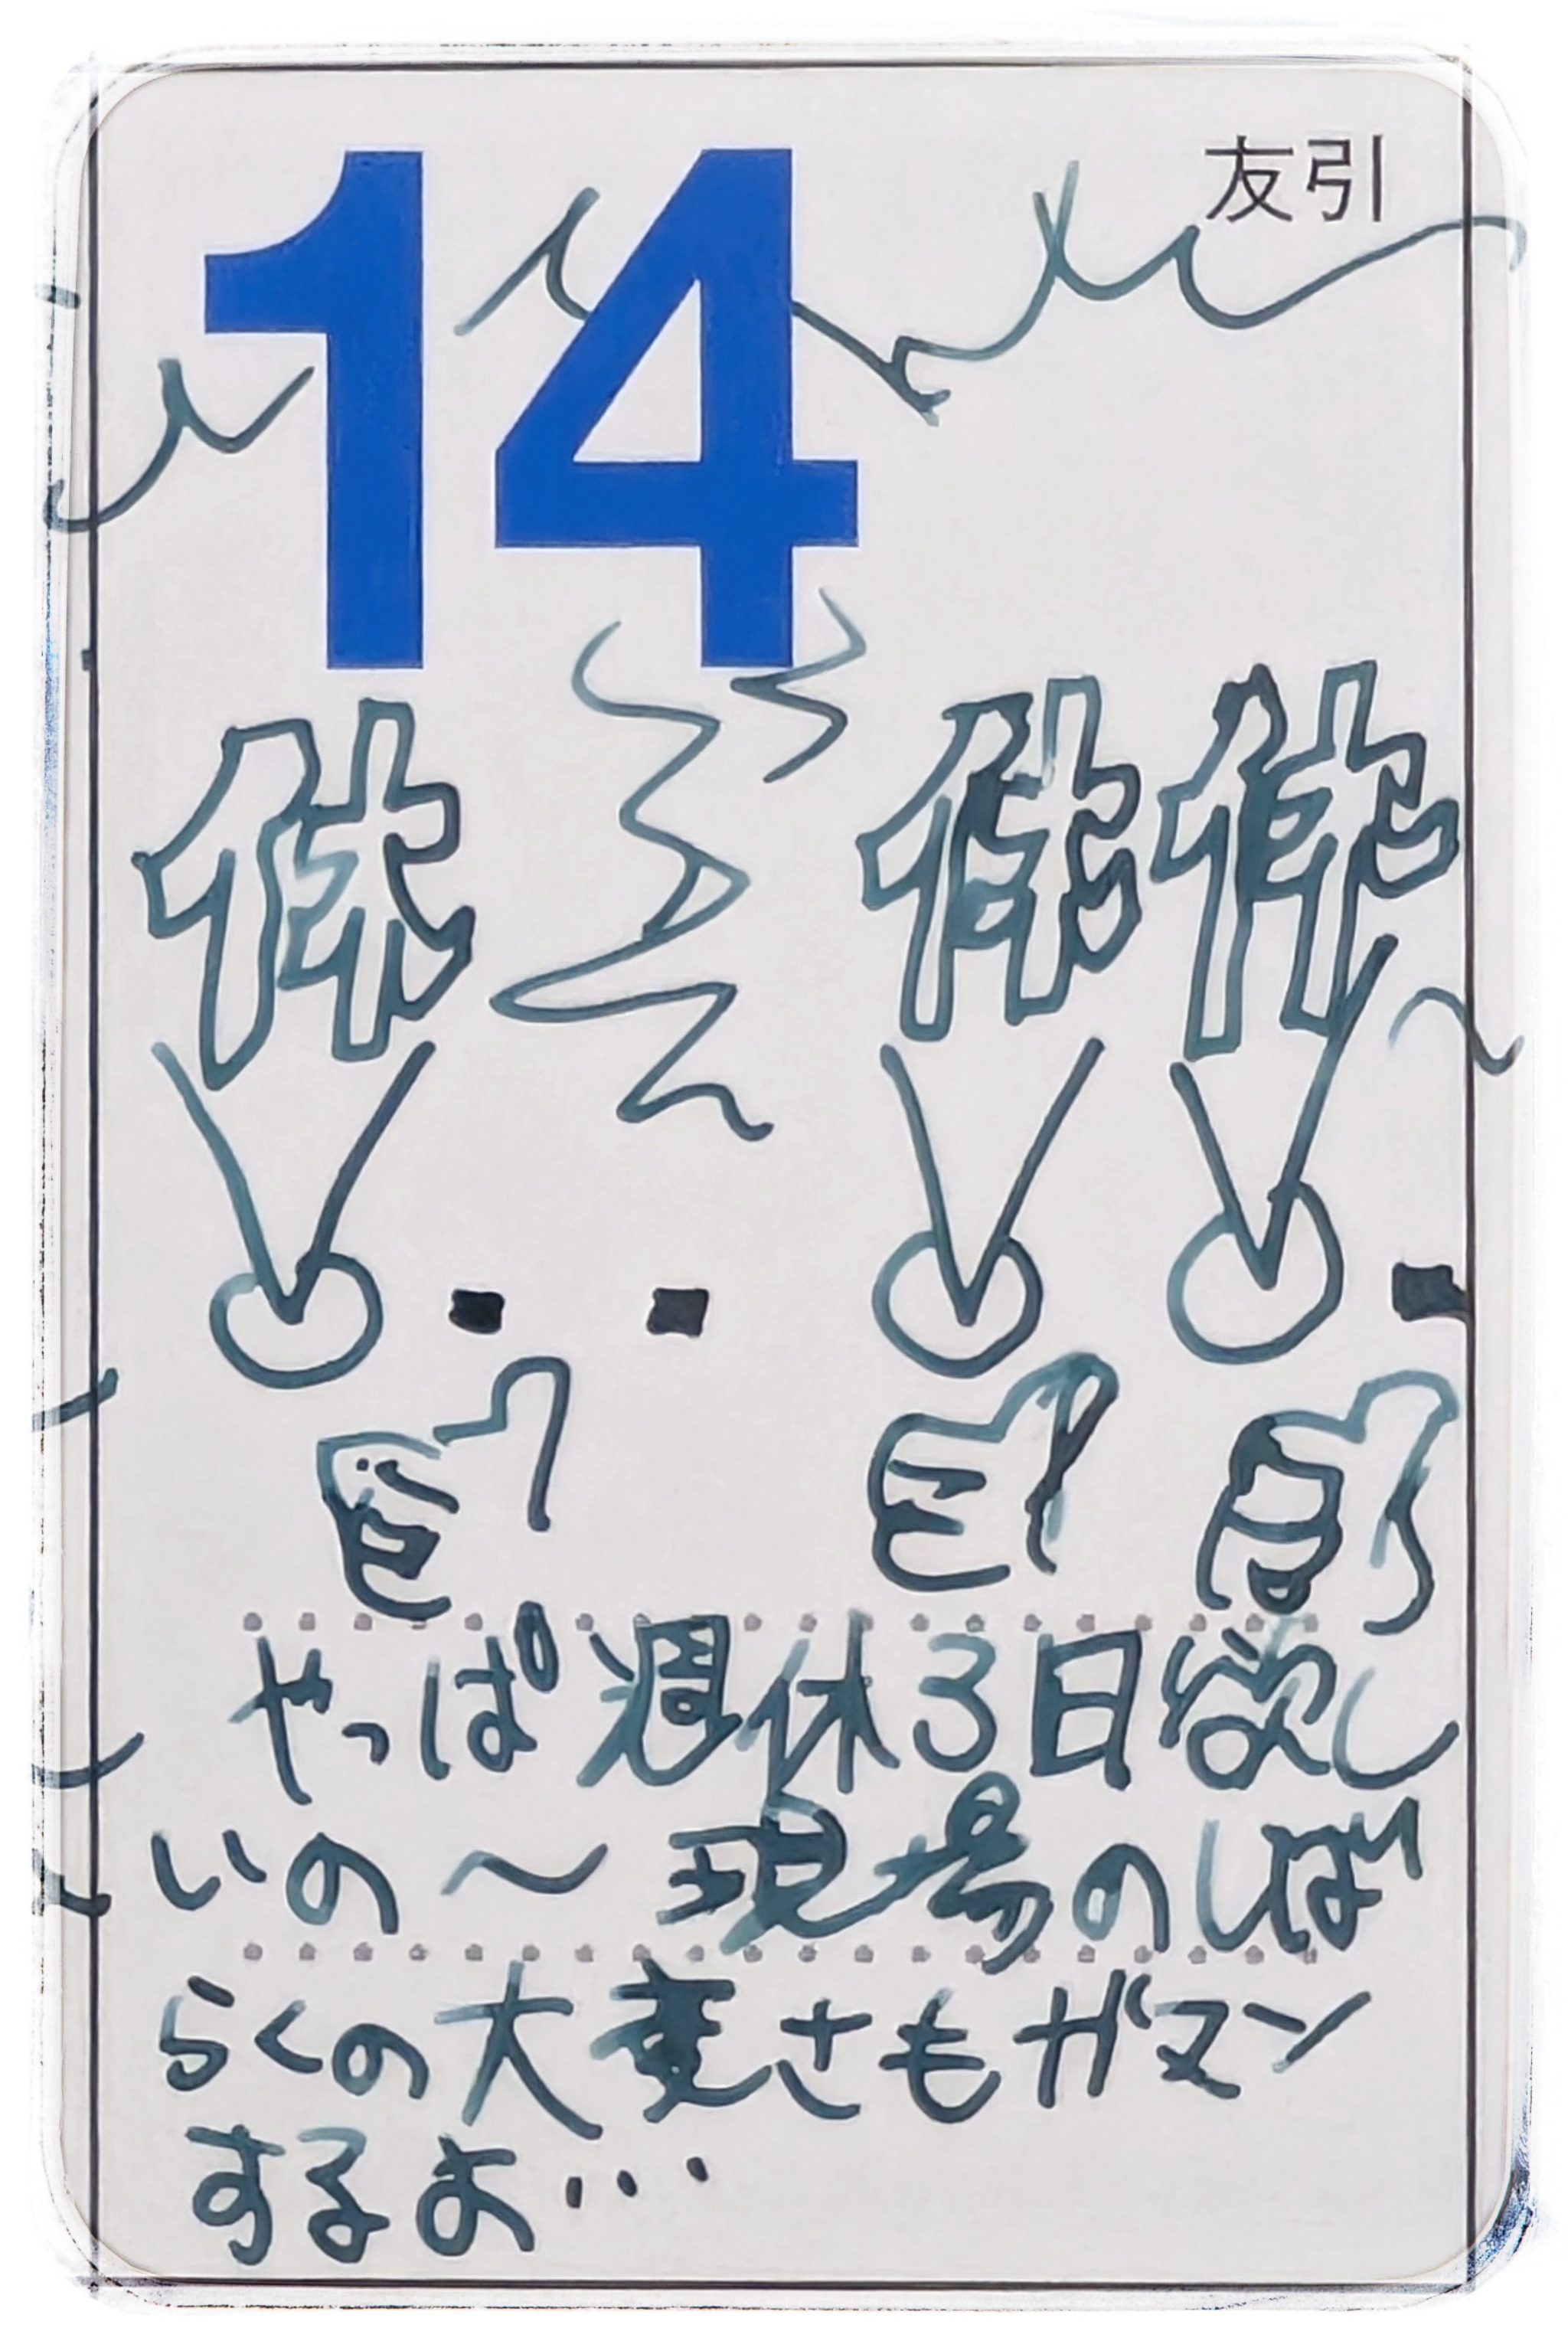 14
友引
休 休休
やっぱ週休3日欲し
いの〜現場のしば
らくの大変さもガマン
するよ…